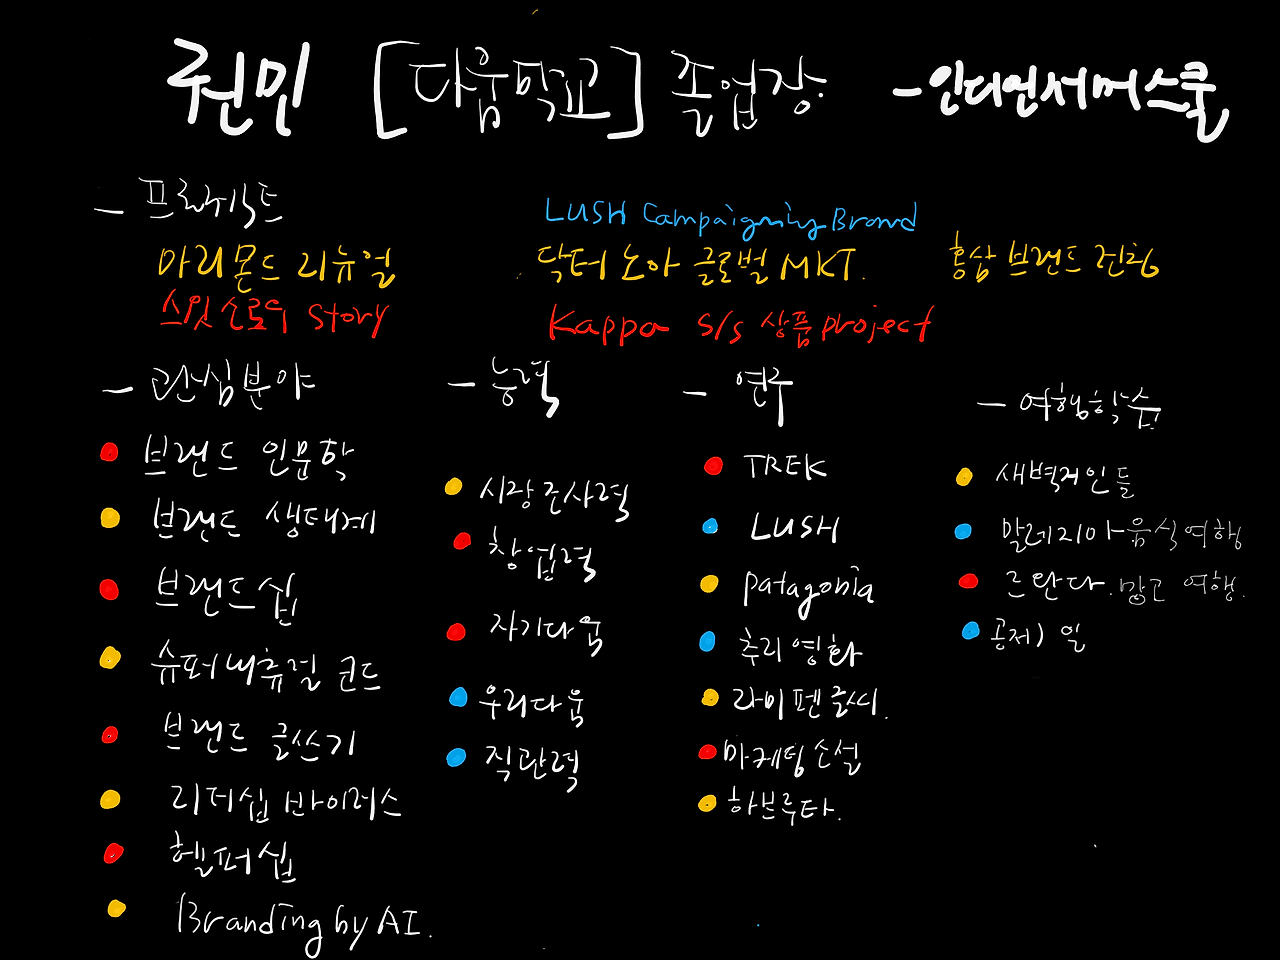 권민 [다음학교] 졸업장 - 인디언서머스쿨
- 프로젝트
LUSH Campaigning Brand
마리몬드 리뉴얼
닥터 노아 글로벌 MKT.
홍삼 브랜드 런칭
스윗 솔로의 Story
Kappa S/S 상품 project
- 관심분야
브랜드 인문학
브랜드 생태계
브랜드십
슈퍼내츄럴 코드
브랜드 글쓰기
리더십 바이러스
헬퍼십
Branding by AI.
- 능력
시장조사력
창업력
자기다움
우리다움
직관력
- 연구
TREK
LUSH
patagonia
추리영화
라미펜글씨.
마케팅소설
하브루타.
- 여행학습
새벽거인들
말레지아음식여행
르완다.망고 여행.
공제) 일